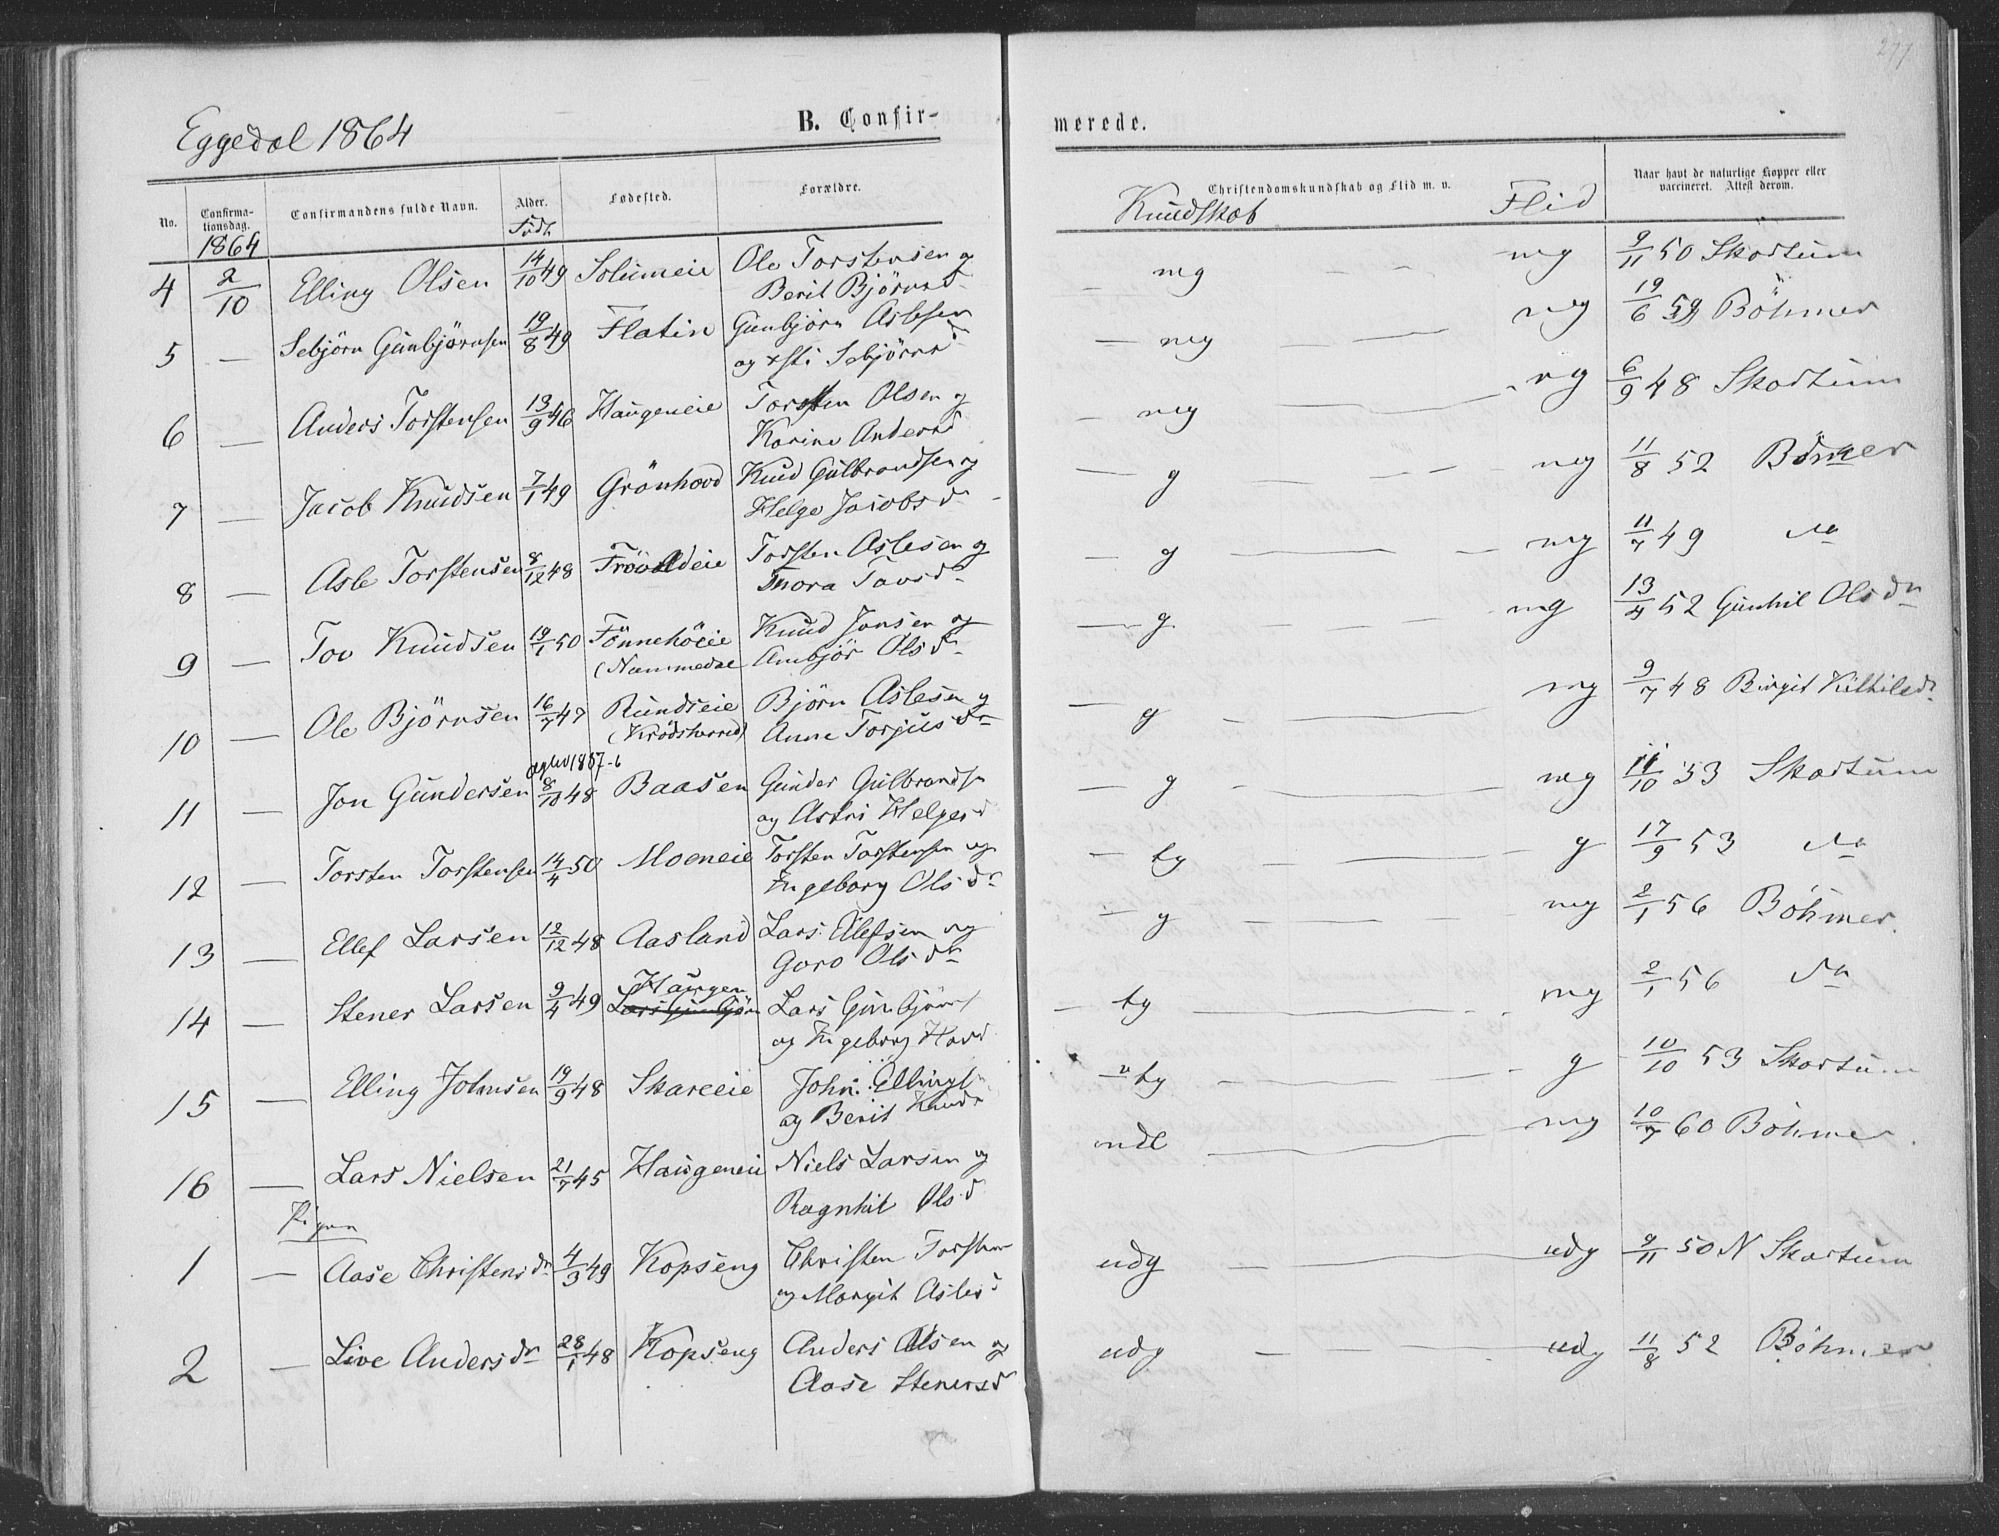 277
Eggedal 1864
B. Confir-
merede.
No.
Confirma-
tionsdag.
Confirmandens fulde Navn.
Alder.
Fødested.
Forældre.
Christendomskundskab og Flid m. v.
Naar havt de naturlige Kopper eller
vaccineret. Attest derom.
1864
Født
Kundskab Flid
4 2/10 Elling Olsen 14/10 49 Solumeie Ole Torstensen og
Berit Björnsd.
mg — — mg 9/11 50 Skortum
5 — Sebjörn Gunbjörnsen 19/8 49 Flatin Gunbjörn Aslesen
og Sebjörnsd
— mg — — mg 19/6 59 Böhmer
6 — Anders Torstensen 13/9 46 Haugeneie Torsten Olsen og
Karine Andersd
— mg — — mg 6/9 48 Skortum
7 — Jacob Knudsen 7/1 49 Grönhovd Knud Gulbrandsen og
Helge Jacobsd
— g — — mg 11/8 52 Böhmer
8 — Asle Torstensen 8/12 48 Torsten Aslesen og
Thora Tovsd
— g — — mg 11/7 49 do
9 — Tov Knudsen 19/1 50 Tönnehöeie Knud Jonsen og
(Nummedal Ambjör Olsd
— g — — mg 13/4 52 Gunhil Olsdr
10 — Ole Björnsen 16/7 47 Rundseie Björn Aslesen og
(Krödsherred) Anne Torjusdr
— g — — mg 9/7 48 Birgit Kittilsdr.
11 — Jon Gundersen 8/10 48 Baasen Gunder Gulbrands
og Astri Helgesd
— g — — mg 11/10 53 Skortum
12 — Torsten Torstensen 14/4 50 Moeneie Torsten Torstensen og
Ingeborg Olsdr
— tg — — g 17/9 53 do
13 — Ellef Larsen 12/12 48 Aasland Lars Ellefsen og
Goro Olsdr
— g — — mg 2/1 56 Böhmer.
14 — Stener Larsen 9/4 49 Haugen Lars Gunbjörns
og Ingeborg Hovd
— tg — — mg 2/1 56 do
15 — Elling Johnsen 19/9 48 Skareeie John Ellings
og Berit Knudr
— tg — — g 10/10 53 Skortum
16 — Lars Nielsen 21/7 45 Haugeneie Niels Larsen og
Ragnhil Olsd
mdl — mg 10/7 60 Böhmer.
Piger
1 — Aase Christensdr 4/3 49 Kopseng Christen Torstens
og Margit Aslesd
udg — — udg 9/11 50 N Skortum
2 — Live Andersdr 28/1 48 Kopseng Anders Olsen og
Aase Stenersd
udg — — udg 11/8 52 Böhmer